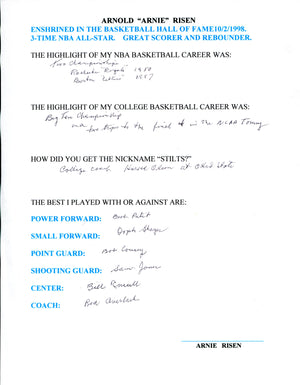 ARNOLD "ARNIE" RISEN
ENSHRINED IN THE BASKETBALL HALL OF FAME10/2/1998.
3-TIME NBA ALL-STAR. GREAT SCORER AND REBOUNDER.
THE HIGHLIGHT OF MY NBA BASKETBALL CAREER WAS:
Two Championships
Rochester "Royals" 1950
Boston "Celtics" 1957
THE HIGHLIGHT OF MY COLLEGE BASKETBALL CAREER WAS:
Big Ten Championship
two trips to the final 4 in the NCAA Tourney
HOW DID YOU GET THE NICKNAME "STILTS?"
College coach Harold Olsen at Ohio State
THE BEST I PLAYED WITH OR AGAINST ARE:
POWER FORWARD: Bob Pettit
SMALL FORWARD: Dolph Schayes
POINT GUARD: Bob Cousy
SHOOTING GUARD: Sam Jones
CENTER: Bill Russell
COACH: Red Auerbach
ARNIE RISEN